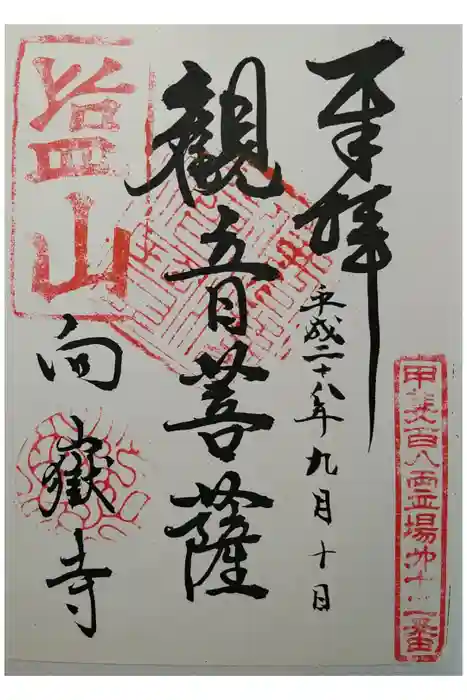 奉拝
平成二十八年九月十日
甲斐百八霊場第十二番
觀音菩薩
塩山
向嶽寺